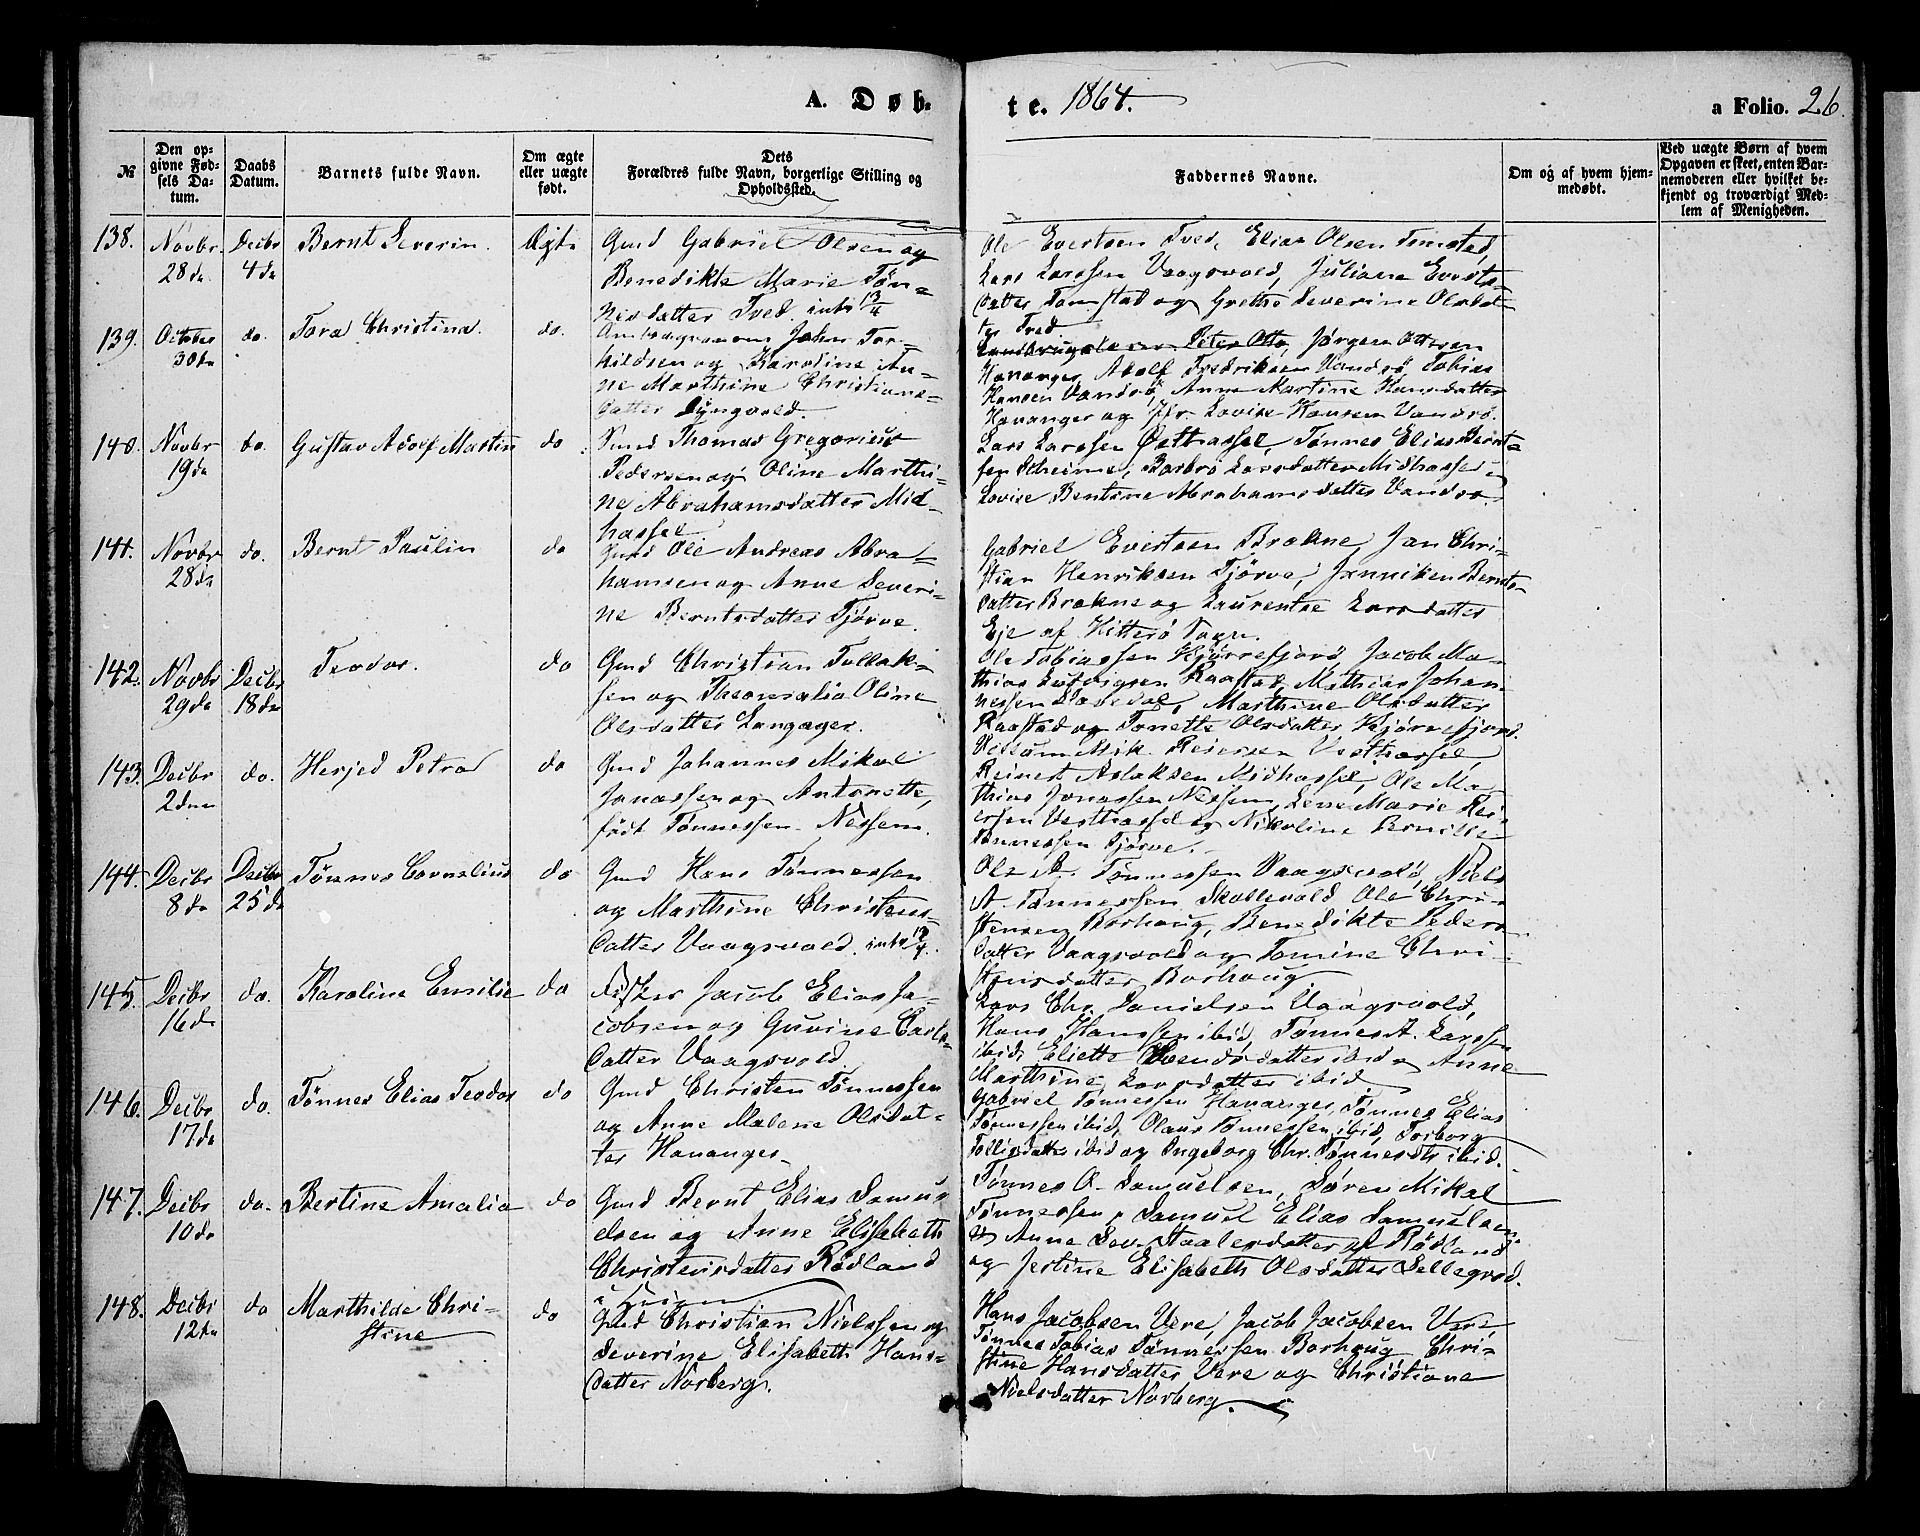 A. Døb- te. 1864. a Folio. 26.
№
Den opgivne Fødsels Datum.
Daabs Datum.
Barnets fulde Navn.
Om ægte eller uægte født.
Dets Forældres fulde Navn, borgerlige Stilling og Opholdssted.
Faddernes Navne.
Om og af hvem hjemmedøbt.
Ved uægte Børn af hvem Opgaven er skeet, enten Barnemoderen eller hvilket bekjendt og troværdigt Medlem af Menigheden.
138. Novbr 28de Decbr 4de Bernt Severin. Ægte
Gmd Gabriel Olsen og
Benedikte Marie Tøn=
nesdatter Tved.
Ole Evertsen Tved, Elias Olsen Tomstad,
Lars Larssen Vaagsvold, Juliane Everts=
datter Tomstad og Grethe Severine Olsdat
ter Tved
139. October 30te do. Tora Christina. do.
John Tor=
kildsen og Karoline An=
ne Marthine Christians=
datter Lyngvold.
Peter Otto, Jørgen Ottesen
Hananger, Adolf Fredriksen Vandsø, Tobias
Hansen Vandsø, Anne Martine Hansdatter
Hananger og Jfr. Lovise Hansen Vandsø.
140. Novbr 19de do. Gustav Adolf Martin do
Gmd Thomas Gregorius
Pedersen og Oline Marthi=
ne Abrahamsdatter Mid=
hassel
Lars Larssen Østhassel, Tønnes Elias Bernt=
sen Skeime, Barbro Larsdatter Midhassel,
Lovise Bentine Abrahamsdatter Vandsø
141. Novbr 28de do. Bernt Paulin do
Gmd Ole Andreas Abra=
hamsen og Anne Severi=
ne Berntsdatter Tjørve.
Gabriel Evertsen Brekne, Jan Chri=
stian Henriksen Tjørve, Janniken Bernts=
datter Brekne og Laurentse Larsdatter
Eje af Hitterø Sogn.
142. Novbr 29de Decbr 18de Teodor. do
Gmd Christian Tollak=
sen og Oline
Olsdatter Langager.
Ole Tobiassen Kjørrefjord Jacob Ma=
thias Ludvigsen Raastad, Mathias Johan=
nessen, Marthine Olsdatter
Raastad og Tonette Olsdatter Kjørrefjord.
143. Decbr 2den do. Herjed Petra do
Gmd Johannes Mikal
Jonassen og Antonette,
født Tønnessen Nessem.
Reierssen Vesthassel,
Reinert Aslaksen Midhassel, Ole Ma=
thias Jonassen Nessem, Lene Marie Rei=
ersen Vesthassel og Nikoline Pernille
Tønnessen Tjørve.
144. Decbr 8de Decbr 25de Tønnes Cornelius do
Gmd Hans Tønnessen
og Marthine Christens=
datter Vaagsvold.
Ole A. Tønnessen Vaagsvold, Niels
A. Tønnessen Skollevold Ole Chri=
stensen Borhaug, Benedikte Peders=
datter Vaagsvold og Tomine Chri=
stensdatter Borhaug
145. Decbr 16de do. Karoline Emilie do
Fisker Jacob Elias Ja=
cobsen og Guvine Carls=
datter Vaagsvold
Lars Chr. Danielsen Vaagsvold,
Hans Hanssen ibid, Tønnes A. Larssen
ibid, Eliette Svendsdatter ibid og Anne
Marthine Larsdatter ibid
146. Decbr 17de do. Tønnes Elias Teodor do
Gmd Christen Tønnessen
og Anne Malene Olsdat=
ter Hananger
Gabriel Tønnessen Hananger, Tønnes Elias
Tønnessen ibid, Olaus Tønnessen ibid, Torborg
Tollisdatter ibid og Ingeborg Chr. Tønnesdtr ibid.
147. Decbr 10de do. Bertine Amalia do
Gmd Bernt Elias Samu=
elsen og Anne Elisabeth
Christensdatter Rødland
Tønnes O. Samuelsen, Søren Mikal
Tønnessen, Samuel Elias Samuelsen
Anne Sev. Staalesdatter af Rødland
og Jertine Elisabeth Olsdatter Sellegrod.
148. Decbr 12te do Marthilde Chri=
stine do
Gmd Christian Nielssen og
Severine Elisabeth Hans=
datter Norberg.
Hans Jacobsen Vere, Jacob Jacobsen Vere
Tønnes Tobias Tønnessen Borhaug Chri=
stine Hansdatter Vere og Christiane
Nielsdatter Norberg.